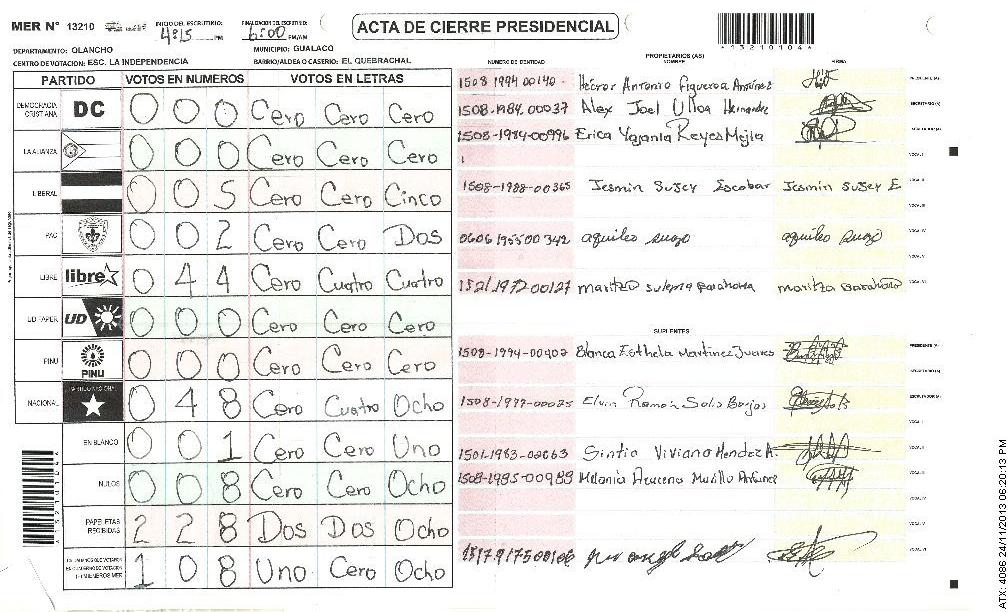 MER N° 13210 INICIO DEL ESCRUTINIO: 4:15 PM FINALIZACION DEL ESCRUTINIO: 6:00 PM/AM ACTA DE CIERRE PRESIDENCIAL
*13210104*
DEPARTAMENTO: OLANCHO MUNICIPIO: GUALACO
CENTRO DE VOTACION: ESC. LA INDEPENDENCIA BARRIO/ALDEA O CASERIO: EL QUEBRACHAL
PARTIDO VOTOS EN NUMEROS VOTOS EN LETRAS
DEMOCRACIA CRISTIANA DC 0 0 0 Cero Cero Cero
LA ALIANZA 0 0 0 Cero Cero Cero
LIBERAL 0 0 5 Cero Cero Cinco
PAC 0 0 2 Cero Cero Dos
LIBRE libre 0 4 4 Cero Cuatro Cuatro
UD FAPER UD 0 0 0 Cero Cero Cero
PINU PINU 0 0 0 Cero Cero Cero
NACIONAL PARTIDO NACIONAL 0 4 8 Cero Cuatro Ocho
EN BLANCO 0 0 1 Cero Cero Uno
NULOS 0 0 8 Cero Cero Ocho
PAPELETAS RECIBIDAS 2 2 8 Dos Dos Ocho
1 0 8 Uno Cero Ocho
PROPIETARIOS (AS)
NUMERO DE IDENTIDAD NOMBRE FIRMA
1508 1994 00140 Héctor Antonio Figueroa Antúnez PRESIDENTE(A)
1508-1984-00037 Alex Joel Ulloa Hernandez SECRETARIO(A)
1508-1984-00996 Erica Yajania Reyes Mejia ESCRUTADOR(A)
VOCAL I
1508-1988-00365 Jesmin Sujey Escobar Jesmin Sujey E VOCAL II
VOCAL III
0606 1955 00342 aquileo VOCAL IV
VOCAL V
1521 1972-00127 maritza Barahona maritza Barahona VOCAL VI
SUPLENTES
1508-1994-00402 Blanca Esthela Martinez Juarez PRESIDENTE (A)
SECRETARIO(A)
Elvin Ramón Solis Borjas ESCRUTADOR(A)
VOCAL I
1501-1983-02063 Sintia Viviana Mendez A. VOCAL II
1508-1985-00989 Melania Murillo Antunez VOCAL III
VOCAL IV
VOCAL V
VOCAL VI
ATX: 4086 24/11/2013 06:20:13 PM